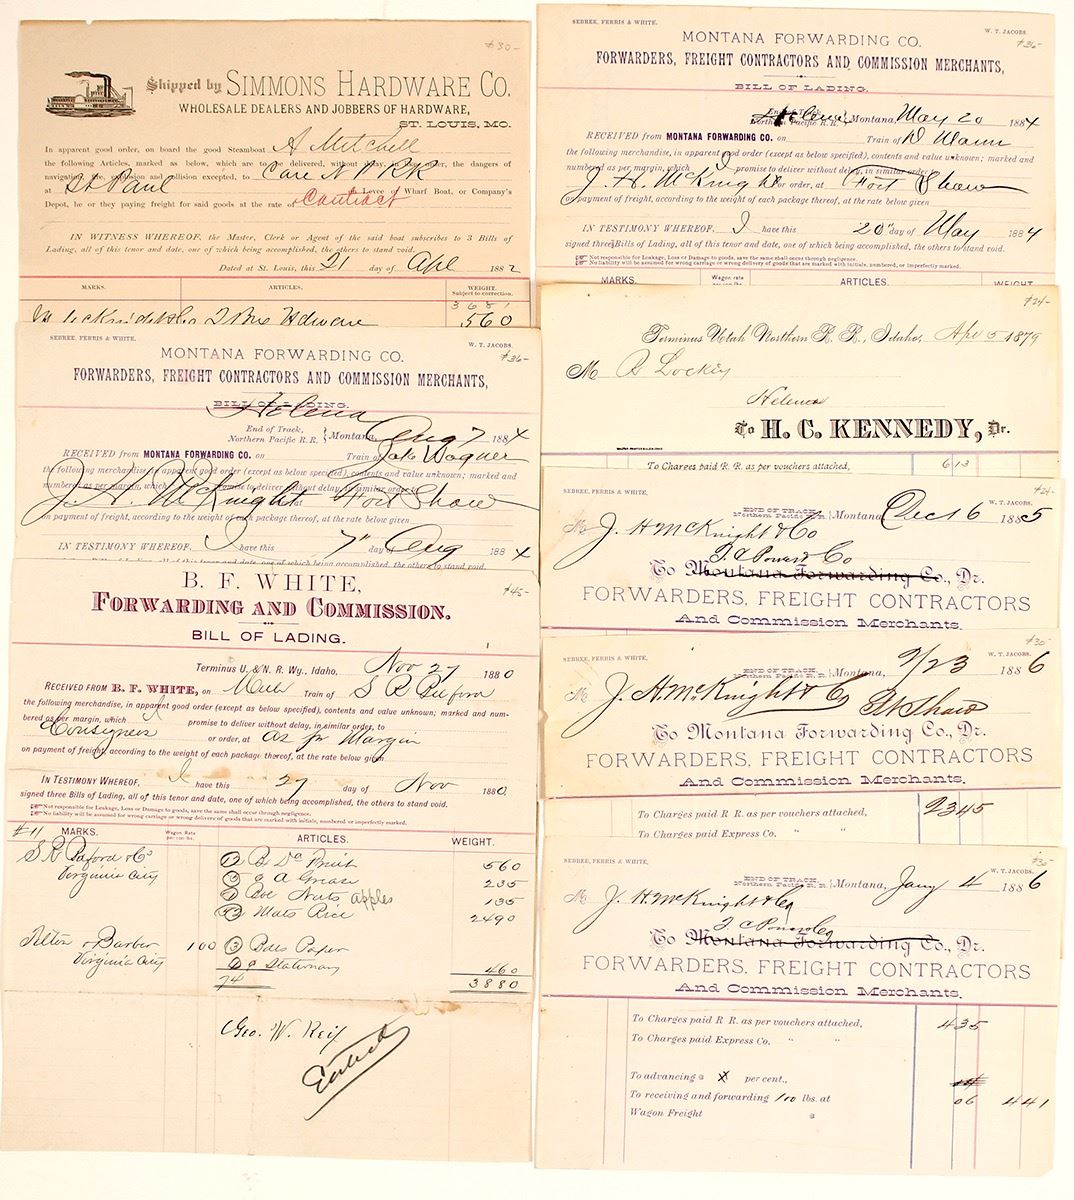 $30-
Shipped by SIMMONS HARDWARE CO.
WHOLESALE DEALERS AND JOBBERS OF HARDWARE,
ST. LOUIS, MO.
In apparent good order, on board the good Steamboat A Mitchell
the following Articles, marked as below, which are to be delivered, without delay, in like order, the dangers of
navigation, fire, explosion and collision excepted, to Care N P RR
at St Paul on Levee or Wharf Boat, or Company's
Depot, he or they paying freight for said goods at the rate of Contract
IN WITNESS WHEREOF, the Master, Clerk or Agent of the said boat subscribes to 3 Bills of
Lading, all of this tenor and date, one of which being accomplished, the others to stand void.
Dated at St. Louis, this 21 day of Apl 1882
MARKS. ARTICLES. WEIGHT.
Subject to correction.
560
SEBREE, FERRIS & WHITE. W. T. JACOBS.
$36-
MONTANA FORWARDING CO.
FORWARDERS, FREIGHT CONTRACTORS AND COMMISSION MERCHANTS,
BILL OF LADING.
Helena
End of Track,
Northern Pacific R. R. } Montana, Aug 7 1884
RECEIVED from MONTANA FORWARDING CO. on Train of Jake Wagner
the following merchandise in apparent good order (except as below specified), contents and value unknown; marked and
numbered as per margin, which promise to deliver without delay, in similar order, to
J. H. McKnight at Fort Shaw
on payment of freight, according to the weight of each package thereof, at the rate below given
IN TESTIMONY WHEREOF, I have this 7" day of Aug 1884
signed three Bills of Lading, all of this tenor and date, one of which being accomplished, the others to stand void.
$45-
B. F. WHITE,
FORWARDING AND COMMISSION.
BILL OF LADING.
Terminus U. & N. R. Wy., Idaho, Nov 27 1880
RECEIVED FROM B. F. WHITE, on Mule Train of S R Buford
the following merchandise, in apparent good order (except as below specified), contents and value unknown; marked and num-
bered as per margin, which I promise to deliver without delay, in similar order, to
Consignees or order, at as pr Margin
on payment of freight according to the weight of each package thereof, at the rate below given
IN TESTIMONY WHEREOF, I have this 27 day of Nov 1880.
signed three Bills of Lading, all of this tenor and date, one of which being accomplished, the others to stand void.
Not responsible for Leakage, Loss or Damage to goods, save the same shall occur through negligence.
No liability will be assumed for wrong carriage or wrong delivery of goods that are marked with initials, numbered or imperfectly marked.
#11 MARKS. Wagon Rate per 100 lbs. ARTICLES. WEIGHT.
S R Buford & Co 560
Virginia City A Grease 235
Nuts apples 135
Mats Rice 2490
Tilton & Barber 100 (3) Bdls Paper
Virginia City Do Stationary 460
74 3880
Geo. W. Reif
SEBREE, FERRIS & WHITE. W. T. JACOBS.
$36-
MONTANA FORWARDING CO.
FORWARDERS, FREIGHT CONTRACTORS AND COMMISSION MERCHANTS,
BILL OF LADING.
End of Track,
Northern Pacific R. R. Helena, Montana, May 20 1884
RECEIVED from MONTANA FORWARDING CO. on Train of D Mann
the following merchandise, in apparent good order (except as below specified), contents and value unknown; marked and
numbered as per margin, which I promise to deliver without delay, in similar order to
J. H. McKnight or order, at Fort Shaw
on payment of freight, according to the weight of each package thereof, at the rate below given
IN TESTIMONY WHEREOF, I have this 20" day of May 1884
signed three Bills of Lading, all of this tenor and date, one of which being accomplished, the others to stand void.
Not responsible for Leakage, Loss or Damage to goods, save the same shall occur through negligence.
No liability will be assumed for wrong carriage or wrong delivery of goods that are marked with initials, numbered, or imperfectly marked.
MARKS. Wagon rate per 100 lbs. ARTICLES. WEIGHT
$24-
Terminus Utah Northern R. R., Idaho, Apr 5 1879
M R Lockey
Helena
To H. C. KENNEDY, Dr.
To Charges paid R. R. as per vouchers attached, 613
$24-
W. T. JACOBS.
END OF TRACK,
Northern Pacific R. R. } Montana, Dec 16 1885
M J. H McKnight & Co
T. C Power & Co
To Montana Forwarding Co., Dr.
FORWARDERS, FREIGHT CONTRACTORS
And Commission Merchants.
$30-
SEBREE, FERRIS & WHITE. W. T. JACOBS.
END OF TRACK,
Northern Pacific R. R. } Montana, 9/23 1886
M J. H McKnight & Co Ft Shaw
To Montana Forwarding Co., Dr.
FORWARDERS, FREIGHT CONTRACTORS
And Commission Merchants.
To Charges paid R. R. as per vouchers attached, 2345
To Charges paid Express Co. " "
$30-
SEBREE, FERRIS & WHITE. W. T. JACOBS.
END OF TRACK,
Northern Pacific R. R. } Montana, Jany 4 1886
M J. H. McKnight & Co
T C Power & Co
To Montana Forwarding Co., Dr.
FORWARDERS, FREIGHT CONTRACTORS
And Commission Merchants.
To Charges paid R. R. as per vouchers attached, 435
To Charges paid Express Co. " "
To advancing @ per cent.,
To receiving and forwarding 100 lbs. at 06 441
Wagon Freight @